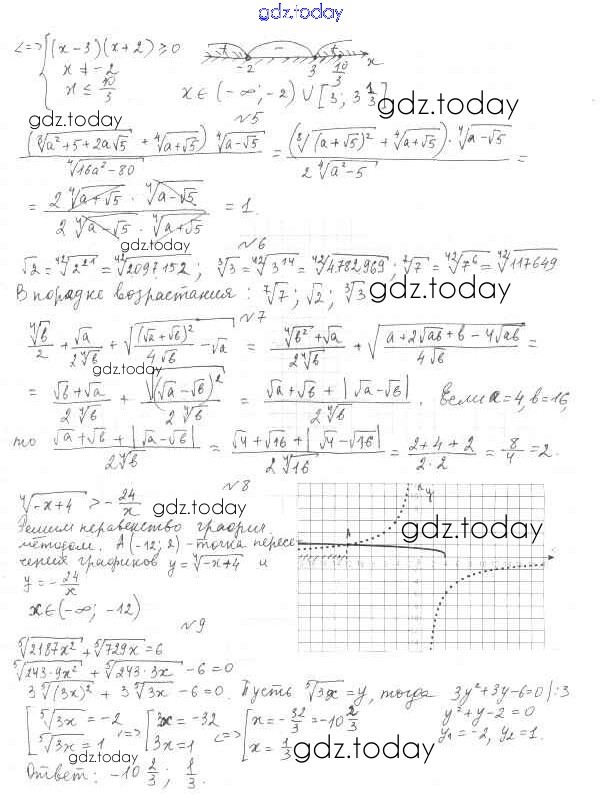 gdz.today
<=> { (x-3)(x+2) ≥ 0
x ≠ -2
x ≤ 10/3
+ - + -2 3 10/3 x
x ∈ (-∞; -2) ∪ [3; 3 1/3]
gdz.today gdz.today
№5
((⁸√(a²+5+2a√5) + ⁴√(a+√5)) ⁴√(a-√5)) / ⁴√(16a²-80) = ((⁸√((a+√5)²) + ⁴√(a+√5)) · ⁴√(a-√5)) / (2 ⁴√(a²-5)) =
= (2 ⁴√(a+√5) · ⁴√(a-√5)) / (2 ⁴√(a-√5) · ⁴√(a+√5)) = 1.
gdz.today
№6
√2 = ⁴²√(2²¹) = ⁴²√2097152; ³√3 = ⁴²√(3¹⁴) = ⁴²√4782969; ⁷√7 = ⁴²√(7⁶) = ⁴²√117649
В порядке возрастания: ⁷√7; √2; ³√3 gdz.today
№7
⁴√b/2 + √a/(2⁴√b) + √((√a+√b)²/(4√b) - √a) = (⁴√b² + √a)/(2⁴√b) + √((a+2√ab+b-4√ab)/(4√b)) =
gdz.today
= (√b+√a)/(2⁴√b) + √((√a-√b)²)/(2⁴√b) = (√a+√b+|√a-√b|)/(2⁴√b). Если a=4, b=16,
то (√a+√b+|√a-√b|)/(2⁴√b) = (√4+√16+|√4-√16|)/(2⁴√16) = (2+4+2)/(2·2) = 8/4 = 2.
№8
⁴√(-x+4) > -24/x
gdz.today
Решим неравенство графич.
методом. A(-12; 2) - точка пересе-
чения графиков y = ⁴√(-x+4) и
y = -24/x
x ∈ (-∞; -12)
y A x
gdz.today
№9
⁵√(2187x²) + ⁵√(729x) = 6
⁵√(243·9x²) + ⁵√(243·3x) - 6 = 0
3 ⁵√((3x)²) + 3 ⁵√(3x) - 6 = 0. Пусть ⁵√(3x) = y, тогда 3y²+3y-6=0 |:3
y²+y-2=0
y₁=-2, y₂=1.
[ ⁵√(3x) = -2 <=> [ 3x = -32 <=> [ x = -32/3 = -10 2/3
⁵√(3x) = 1 3x = 1 x = 1/3
gdz.today
Ответ: -10 2/3; 1/3.